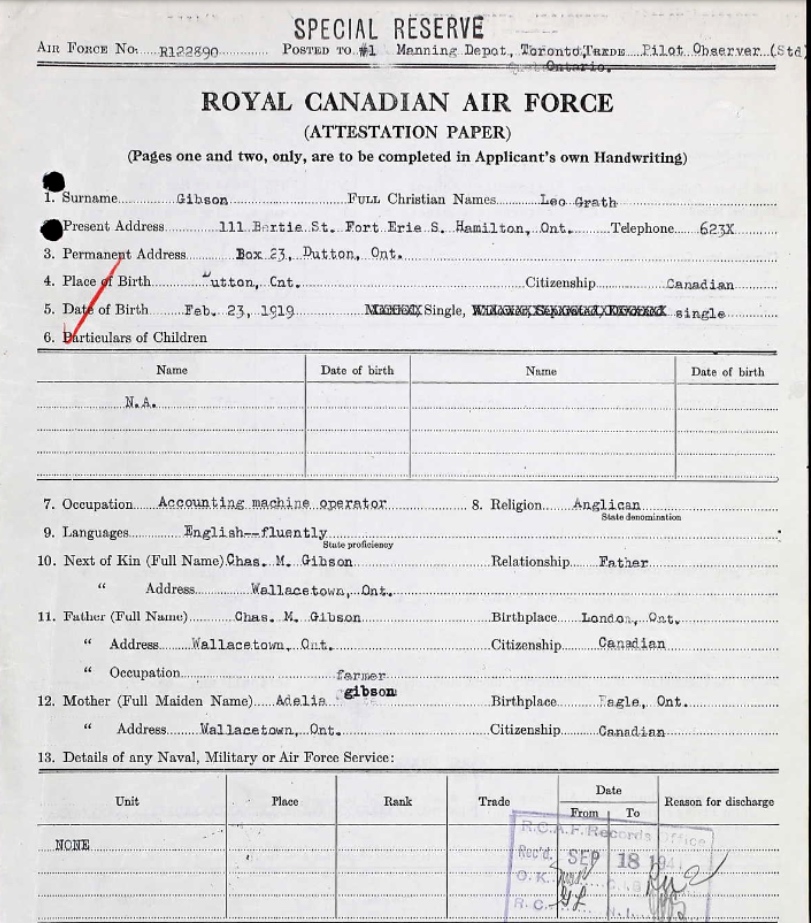 SPECIAL RESERVE
AIR FORCE NO. R122890 POSTED TO #1 Manning Depot, Toronto, TRADE Pilot Observer (Std
Ontario.
ROYAL CANADIAN AIR FORCE
(ATTESTATION PAPER)
(Pages one and two, only, are to be completed in Applicant's own Handwriting)
1. Surname Gibson FULL Christian Names Leo Grath
Present Address 111 Bertie St. Fort Erie S. Hamilton, Ont. Telephone 623X
3. Permanent Address Box 23, Dutton, Ont.
4. Place of Birth utton, Ont. Citizenship Canadian
5. Date of Birth Feb. 23, 1919 Single, single
6. Particulars of Children
Name Date of birth Name Date of birth
N.A.
7. Occupation Accounting machine operator 8. Religion Anglican
State denomination
9. Languages English--fluently
State proficiency
10. Next of Kin (Full Name) Chas. M. Gibson Relationship Father
" Address Wallacetown, Ont.
11. Father (Full Name) Chas. M. Gibson Birthplace London, Ont.
" Address Wallacetown, Ont. Citizenship Canadian
" Occupation farmer
12. Mother (Full Maiden Name) Adelia gibson Birthplace Eagle, Ont.
" Address Wallacetown, Ont. Citizenship Canadian
13. Details of any Naval, Military or Air Force Service:
Unit Place Rank Trade Date From To Reason for discharge
NONE
R.C.A.F. Records Office
Rec'd. SEP 18 194
O.K.
R.C.